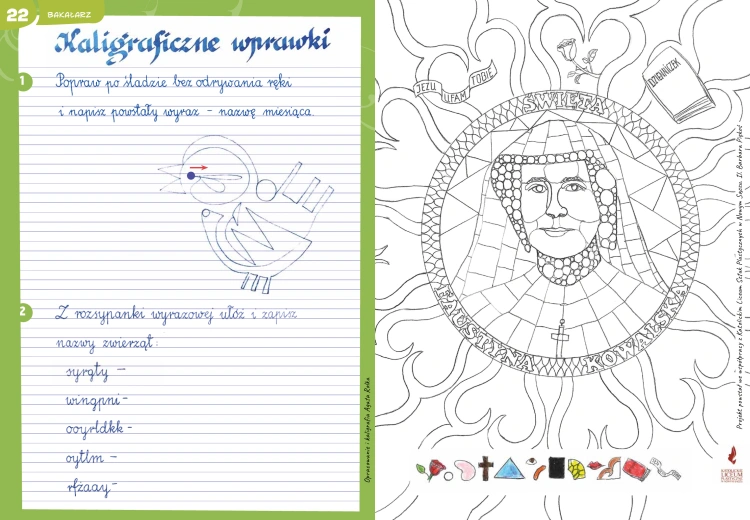 22 BAKAŁARZ
Kaligraficzne wprawki
1 Popraw po śladzie bez odrywania ręki
i napisz powstały wyraz - nazwę miesiąca.
2 Z rozsypanki wyrazowej ułóż i zapisz
nazwy zwierząt:
syrgty -
wingpni-
ooyrldkk -
oytlm -
rfzaay-
Opracowanie i kaligrafia Agata Rolka
JEZU UFAM TOBIE
DZIENNICZEK
ŚWIĘTA
FAUSTYNA KOWALSKA
Projekt powstał we współpracy z Katolickim Liceum Sztuk Plastycznych w Nowym Sączu. Il. Barbara
LICEUM